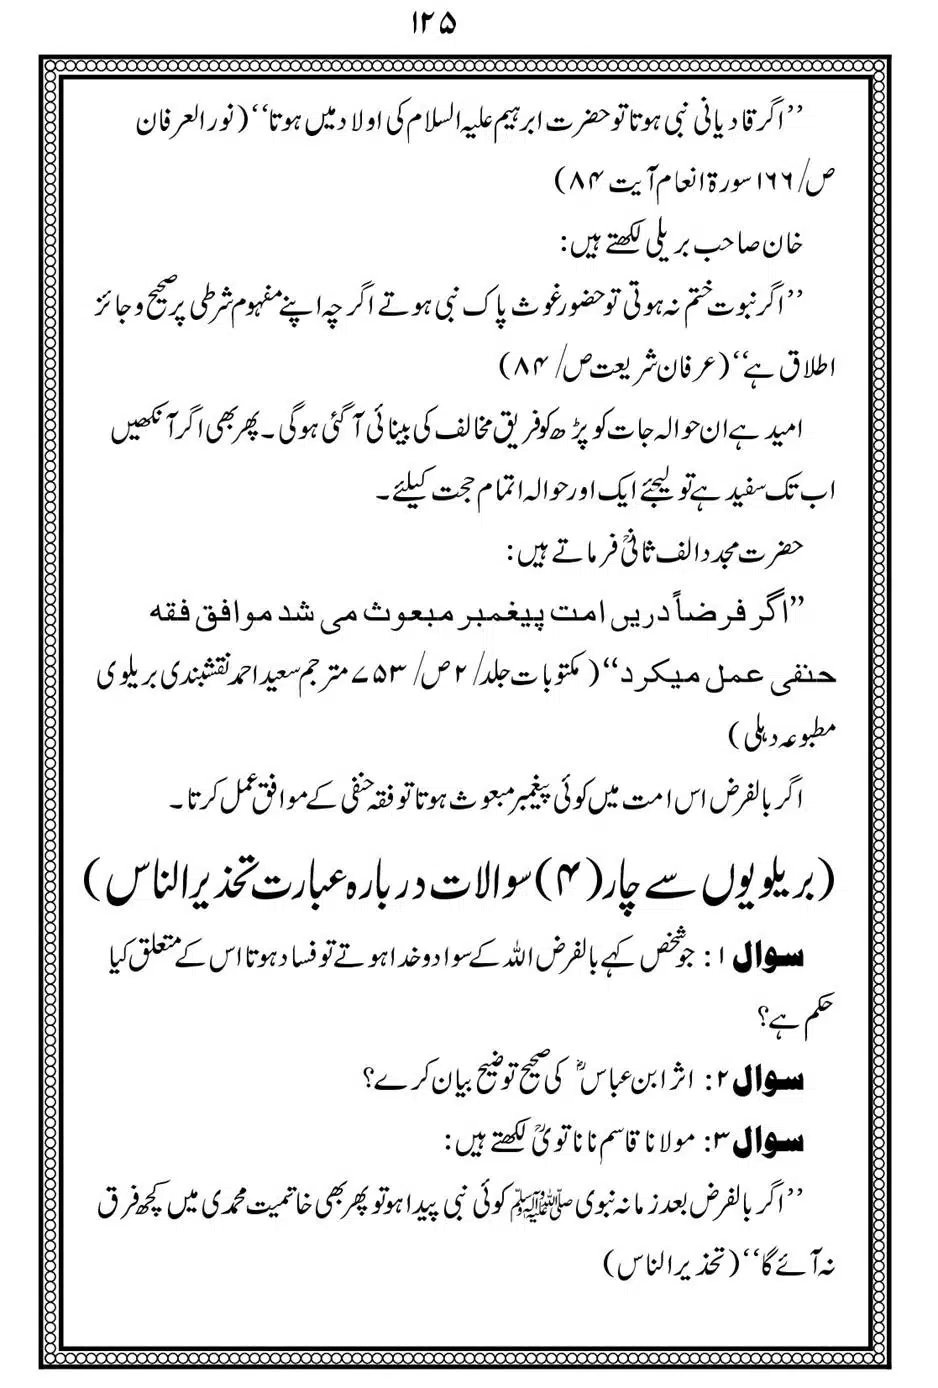 ۱۲۵
’’اگر قادیانی نبی ہوتا تو حضرت ابرہیم علیہ السلام کی اولاد میں ہوتا‘‘ (نور العرفان
ص/۱۶۶ سورۃ انعام آیت ۸۴)
خان صاحب بریلی لکھتے ہیں:
’’اگر نبوت ختم نہ ہوتی تو حضور غوث پاک نبی ہوتے اگر چہ اپنے مفہوم شرطی پر صحیح و جائز
اطلاق ہے‘‘ (عرفان شریعت ص/ ۸۴)
امید ہے ان حوالہ جات کو پڑھ کو فریق مخالف کی بینائی آگئی ہوگی۔ پھر بھی اگر آنکھیں
اب تک سفید ہے تو لیجئے ایک اور حوالہ اتمام حجت کیلئے۔
حضرت مجدد الف ثانیؒ فرماتے ہیں:
’’اگر فرضاً دریں امت پیغمبر مبعوث می شد موافق فقہ
حنفی عمل میکرد‘‘ ( مکتوبات جلد/ ۲ ص/ ۷۵۳ مترجم سعید احمد نقشبندی بریلوی
مطبوعہ دہلی)
اگر بالفرض اس امت میں کوئی پیغمبر مبعوث ہوتا تو فقہ حنفی کے موافق عمل کرتا۔
(بریلویوں سے چار (۴) سوالات دربارہ عبارت تحذیر الناس)
سوال ۱: جو شخص کہے بالفرض اللہ کے سوا دو خدا ہوتے تو فساد ہوتا اس کے متعلق کیا
حکم ہے؟
سوال ۲: اثر ابن عباسؓ کی صحیح توضیح بیان کرے؟
سوال ۳: مولانا قاسم نانا تویؒ لکھتے ہیں:
’’اگر بالفرض بعد زمانہ نبوی ﷺ کوئی نبی پیدا ہو تو پھر بھی خاتمیت محمدی میں کچھ فرق
نہ آئے گا‘‘ (تحذیر الناس)